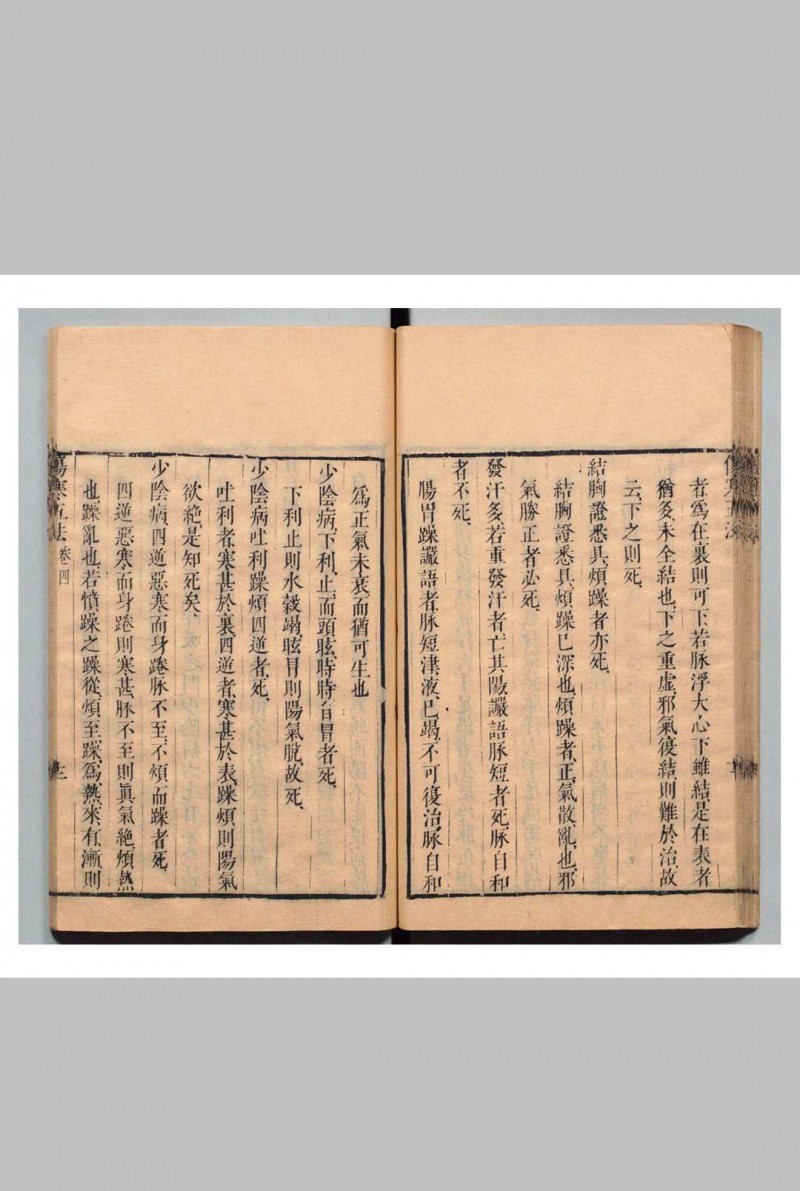 者爲在裏則可下若脉浮大心下雖結是在表者
猶多未全結也下之重虛邪氣復結則難於治故
云下之則死
結胸證悉具煩躁者亦死
結胸證悉具煩躁巳深也煩躁者正氣散亂也邪
氣勝正者必死
發汗多若重發汗者亡其陽讝語脉短者死脉自和
者不死
腸胃躁讝語者脉短津液巳竭不可復治脉自和
爲正氣未衰而猶可生也
少陰病下利止而頭眩時時自冒者死
下利止則水穀竭眩冒則陽氣脫故死
少陰病吐利躁煩四逆者死
吐利者寒甚於裏四逆者寒甚於表躁煩則陽氣
欲絶是知死矣
少陰病四逆惡寒而身踡脉不至不煩而躁者死
四逆惡寒而身踡則寒甚脉不至則眞氣絶煩熱
也躁亂也若憤躁之躁從煩至躁爲熱來有漸則
傷寒五法 卷四